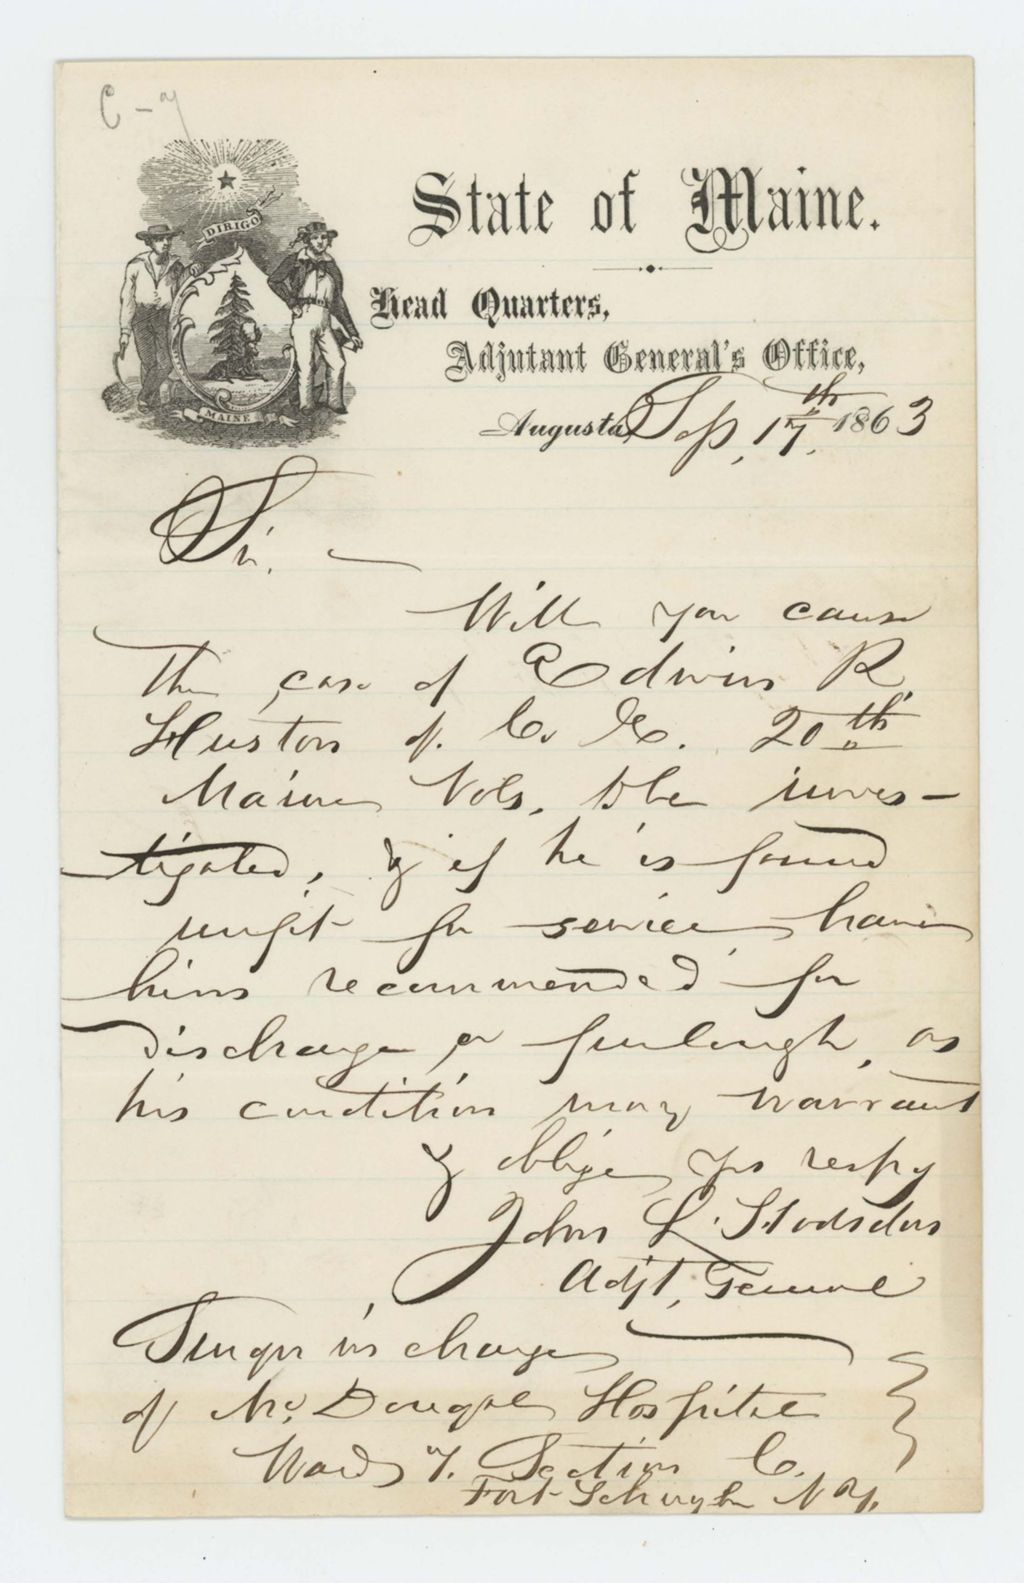 C-7
DIRIGO
MAINE
State of Maine.
Head Quarters,
Adjutant General's Office,
Augusta, Sep. 17th, 1863
Sir.
Will you cause
The case of Edwin R.
Huston of Co. E. 20th
Maine Vols. to be inves-
tigated, & if he is found
unfit for service have
him recommended for
discharge or furlough, as
his condition may warrant
& oblige Yrs respy
John L. Hodsdon
Adjt, General
Surgn in charge
of Mc Dougal Hospital
Ward 7. Section C.
Fort Schuyler N Y.